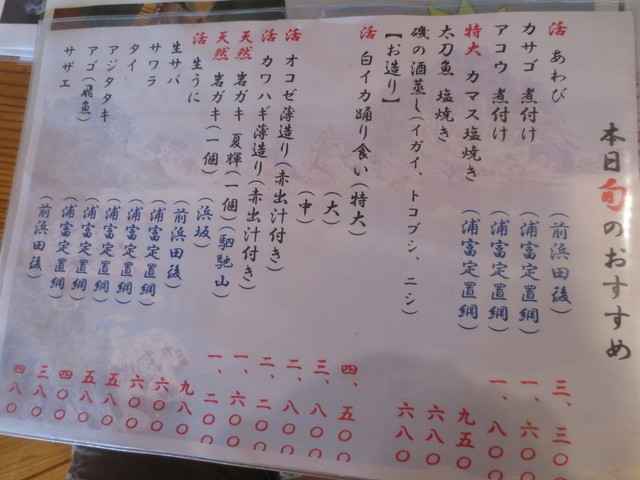 本日旬のおすすめ
活 あわび (前浜田後) 三、三〇
カサゴ 煮付け (浦富定置網) 一、六〇〇
アコウ 煮付け (浦富定置網) 一、八〇〇
特大 カマス塩焼き (浦富定置網) 九五〇
太刀魚 塩焼き 六八〇
磯の酒蒸し(イガイ、トコブシ、ニシ) 六八〇
【お造り】
活 白イカ踊り食い(特大) 四、五〇〇
(大) 三、八〇〇
(中) 二、八〇〇
活 オコゼ薄造り(赤出汁付き) 二、二〇〇
活 カワハギ薄造り(赤出汁付き) 一、六〇〇
天然 岩ガキ 夏輝(一個)(駟馳山) 一、二〇〇
天然 岩ガキ(一個) (浜坂) 九八〇
活 生うに (前浜田後) 六〇〇
生サバ (浦富定置網) 六〇〇
サワラ (浦富定置網) 五八〇
タイ (浦富定置網) 五八〇
アジタタキ (浦富定置網) 四〇〇
アゴ(飛魚) (浦富定置網) 三八〇
サザエ (前浜田後) 四八〇